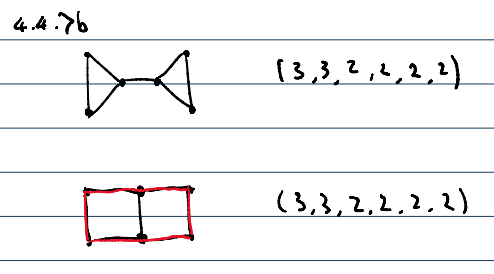 4.4.7b
(3,3,2,2,2,2)
(3,3,2,2,2,2)